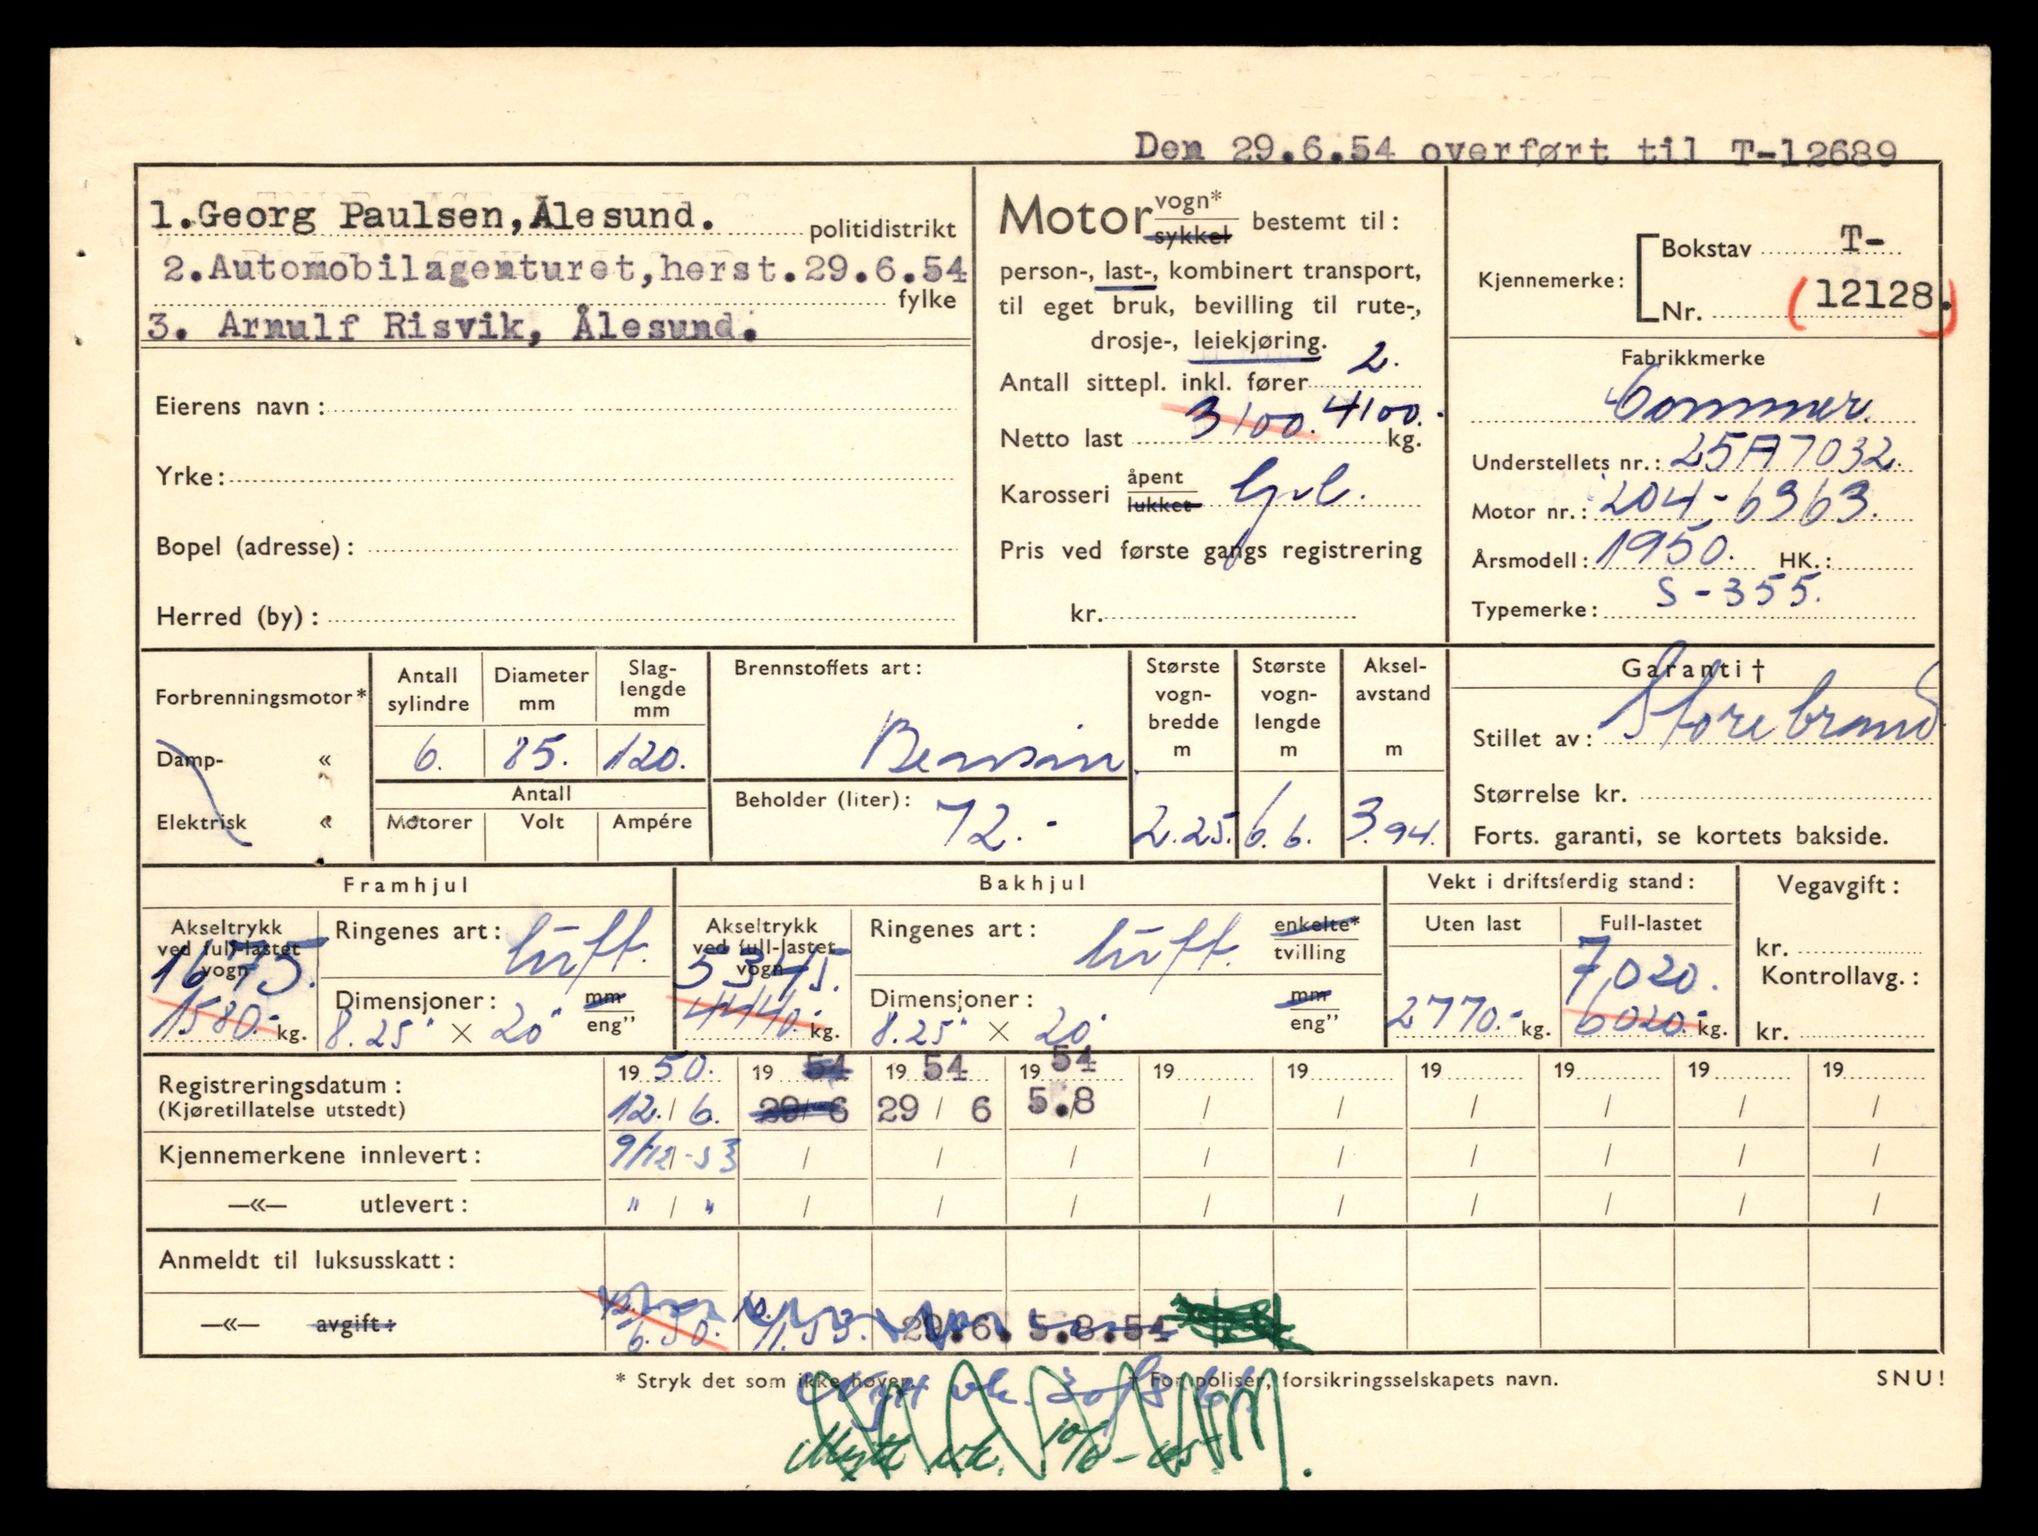 Den 29.6.54 overført til T-12689
1.Georg Paulsen,Ålesund. politidistrikt
2.Automobilagenturet,herst.29.6.54
fylke
3. Arnulf Risvik, Ålesund.
Eierens navn :
Yrke :
Bopel (adresse) :
Herred (by) :
Motor vogn* sykkel bestemt til :
person-, last-, kombinert transport,
til eget bruk, bevilling til rute-,
drosje-, leiekjøring.
Antall sittepl. inkl. fører 2.
Netto last 3100. 4100. kg.
Karosseri åpent lukket
Pris ved første gangs registrering
kr.
Kjennemerke: Bokstav T-
Nr. (12128.)
Fabrikkmerke
Commer.
Understellets nr. : 25A7032.
Motor nr. : 204-6363.
Årsmodell : 1950. HK. :
Typemerke : S-355.
Forbrenningsmotor*
Damp- «
Elektrisk «
Antall sylindre
6.
Diameter mm
85.
Slag- lengde mm
120.
Antall
Motorer Volt Ampére
Brennstoffets art :
Bensin
Beholder (liter) : 72.-
Største vogn- bredde m
2.25.
Største vogn- lengde m
6.6.
Aksel- avstand m
3.94.
Garanti †
Stillet av : Storebrand
Størrelse kr.
Forts. garanti, se kortets bakside.
Framhjul
Akseltrykk ved full-lastet vogn
1675.
1580.- kg.
Ringenes art : luft.
Dimensjoner : mm eng”
8.25" × 20"
Bakhjul
Akseltrykk ved full-lastet vogn
5345.
4440.- kg.
Ringenes art : luft. enkelte* tvilling
Dimensjoner : mm eng”
8.25" × 20"
Vekt i driftsferdig stand :
Uten last
2770.- kg.
Full-lastet
7,020.
6020.- kg.
Vegavgift :
kr.
Kontrollavg. :
kr.
Registreringsdatum : 19 50. 19 54 19 54 19 54 19 19 19 19 19 19
(Kjøretillatelse utstedt) 12. / 6. 29 / 6 29 / 6 5.8 / / / / / /
Kjennemerkene innlevert : 9/12-53 / / / / / / / / /
—«— utlevert : " / " / / / / / / / / /
Anmeldt til luksusskatt :
—«— avgift : 12. 6.50. 11.53. 29.6. 5.8.54
* Stryk det som ikke høver. † For poliser, forsikringsselskapets navn. SNU!